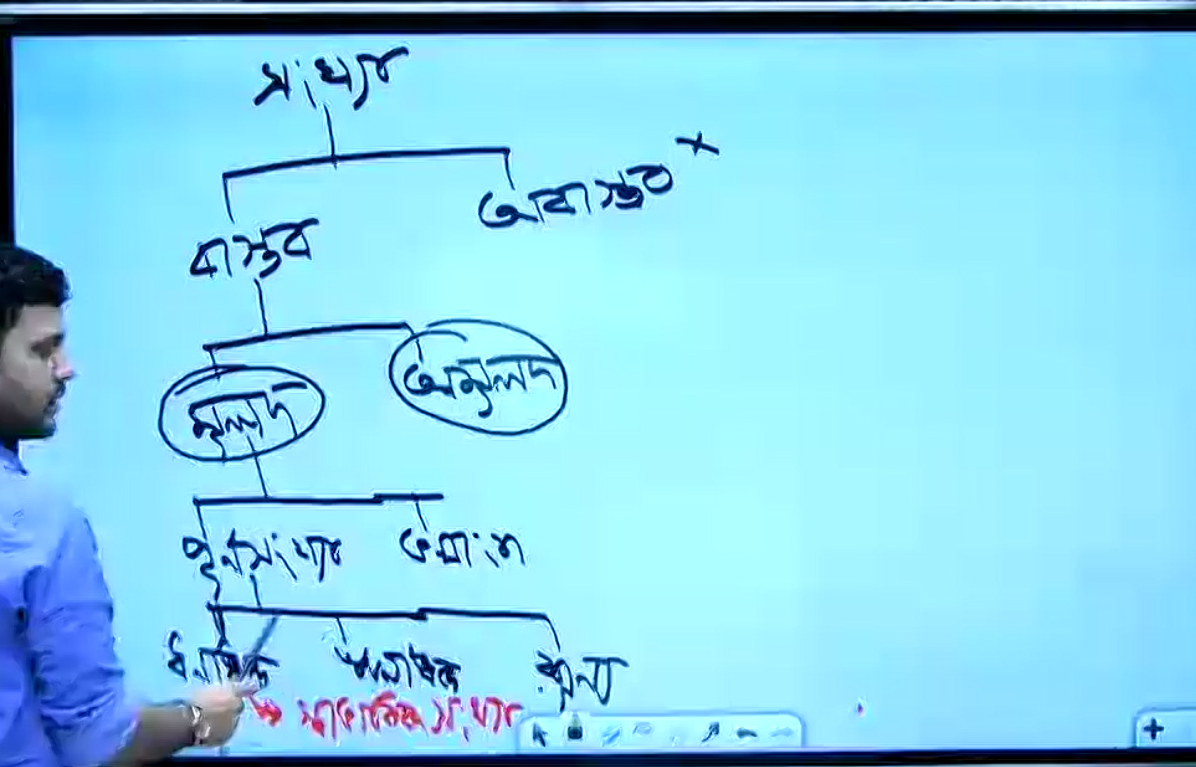 সংখ্যা
বাস্তব অবাস্তব ×
মূলদ অমূলদ
পূর্ণসংখ্যা ভগ্নাংশ
ধনাত্মক ঋনাত্মক শূন্য
→ স্বাভাবিক সংখ্যা